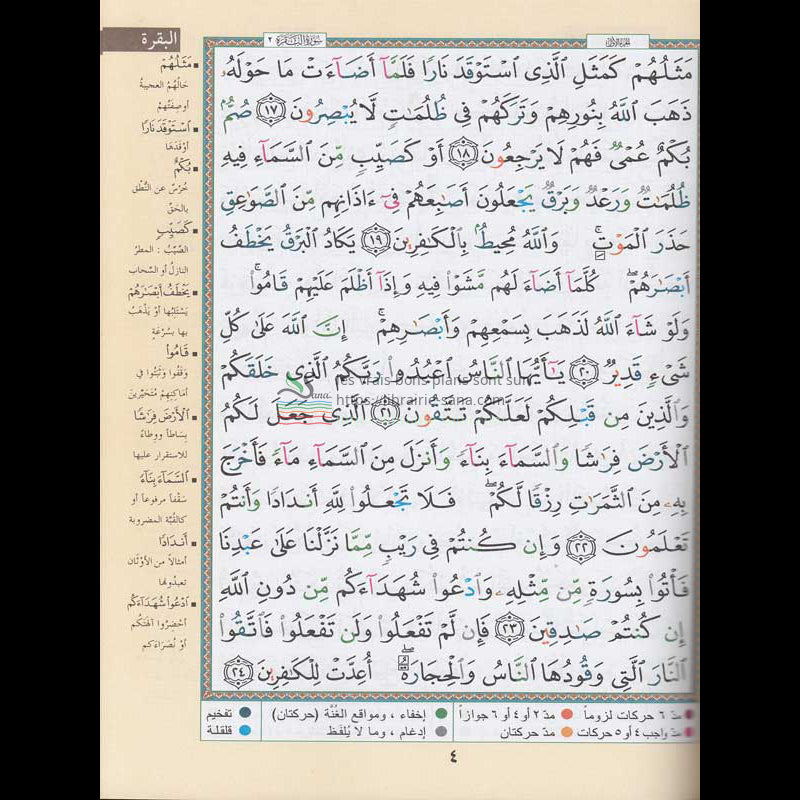 البقرة
سورة البقرة ٢
الجزء الأول
مَثَلُهُمْ كَمَثَلِ ٱلَّذِى ٱسْتَوْقَدَ نَارًا فَلَمَّآ أَضَآءَتْ مَا حَوْلَهُۥ
ذَهَبَ ٱللَّهُ بِنُورِهِمْ وَتَرَكَهُمْ فِى ظُلُمَٰتٍ لَّا يُبْصِرُونَ ١٧ صُمٌّۢ
بُكْمٌ عُمْىٌ فَهُمْ لَا يَرْجِعُونَ ١٨ أَوْ كَصَيِّبٍ مِّنَ ٱلسَّمَآءِ فِيهِ
ظُلُمَٰتٌ وَرَعْدٌ وَبَرْقٌ يَجْعَلُونَ أَصَٰبِعَهُمْ فِىٓ ءَاذَانِهِم مِّنَ ٱلصَّوَٰعِقِ
حَذَرَ ٱلْمَوْتِ ۚ وَٱللَّهُ مُحِيطٌۢ بِٱلْكَٰفِرِينَ ١٩ يَكَادُ ٱلْبَرْقُ يَخْطَفُ
أَبْصَٰرَهُمْ ۖ كُلَّمَآ أَضَآءَ لَهُم مَّشَوْا۟ فِيهِ وَإِذَآ أَظْلَمَ عَلَيْهِمْ قَامُوا۟ ۚ
وَلَوْ شَآءَ ٱللَّهُ لَذَهَبَ بِسَمْعِهِمْ وَأَبْصَٰرِهِمْ ۚ إِنَّ ٱللَّهَ عَلَىٰ كُلِّ
شَىْءٍ قَدِيرٌ ٢٠ يَٰٓأَيُّهَا ٱلنَّاسُ ٱعْبُدُوا۟ رَبَّكُمُ ٱلَّذِى خَلَقَكُمْ
وَٱلَّذِينَ مِن قَبْلِكُمْ لَعَلَّكُمْ تَتَّقُونَ ٢١ ٱلَّذِى جَعَلَ لَكُمُ
ٱلْأَرْضَ فِرَٰشًا وَٱلسَّمَآءَ بِنَآءً وَأَنزَلَ مِنَ ٱلسَّمَآءِ مَآءً فَأَخْرَجَ
بِهِۦ مِنَ ٱلثَّمَرَٰتِ رِزْقًا لَّكُمْ ۖ فَلَا تَجْعَلُوا۟ لِلَّهِ أَندَادًا وَأَنتُمْ
تَعْلَمُونَ ٢٢ وَإِن كُنتُمْ فِى رَيْبٍ مِّمَّا نَزَّلْنَا عَلَىٰ عَبْدِنَا
فَأْتُوا۟ بِسُورَةٍ مِّن مِّثْلِهِۦ وَٱدْعُوا۟ شُهَدَآءَكُم مِّن دُونِ ٱللَّهِ
إِن كُنتُمْ صَٰدِقِينَ ٢٣ فَإِن لَّمْ تَفْعَلُوا۟ وَلَن تَفْعَلُوا۟ فَٱتَّقُوا۟
ٱلنَّارَ ٱلَّتِى وَقُودُهَا ٱلنَّاسُ وَٱلْحِجَارَةُ ۖ أُعِدَّتْ لِلْكَٰفِرِينَ ٢٤
مَثَلُهُمْ
حَالُهُمُ العجيبةُ
أو صِفَتُهُمْ
ٱسْتَوْقَدَ نَارًا
أوْقَدَهَا
بُكْمٌ
خُرْسٌ عن النُّطْقِ
بالحَقِّ
كَصَيِّبٍ
الصَّيِّبُ : المطرُ
النازلُ أو السَّحابُ
يَخْطَفُ أَبْصَٰرَهُمْ
يَسْتَلِبُها أو يَذْهَبُ
بها بسُرْعَةٍ
قَامُوا۟
وَقَفُوا وثَبَتُوا في
أماكِنِهِمْ مُتَحَيِّرينَ
ٱلْأَرْضَ فِرَٰشًا
بِسَاطاً ووِطَاءً
للاستقرار عليها
ٱلسَّمَآءَ بِنَآءً
سَقْفاً مرفوعاً أو
كالقُبَّةِ المضروبةِ
أَندَادًا
أمثالاً من الأوْثَان
تعبدُونَها
ٱدْعُوا۟ شُهَدَآءَكُم
أحْضِرُوا آلهتَكُم
أوْ نُصَرَاءَكم
مدّ ٦ حركات لزوماً
مدّ ٢ أو ٤ أو ٦ جوازاً
إخفاء ، ومواقع الغُنَّة (حركتان)
تفخيم
مدّ واجب ٤ أو ٥ حركات
مدّ حركتان
إدغام ، وما لا يُلفَظ
قلقلة
٤
Sana.com
les vrais bons plans sont sur
https://librairie-sana.com